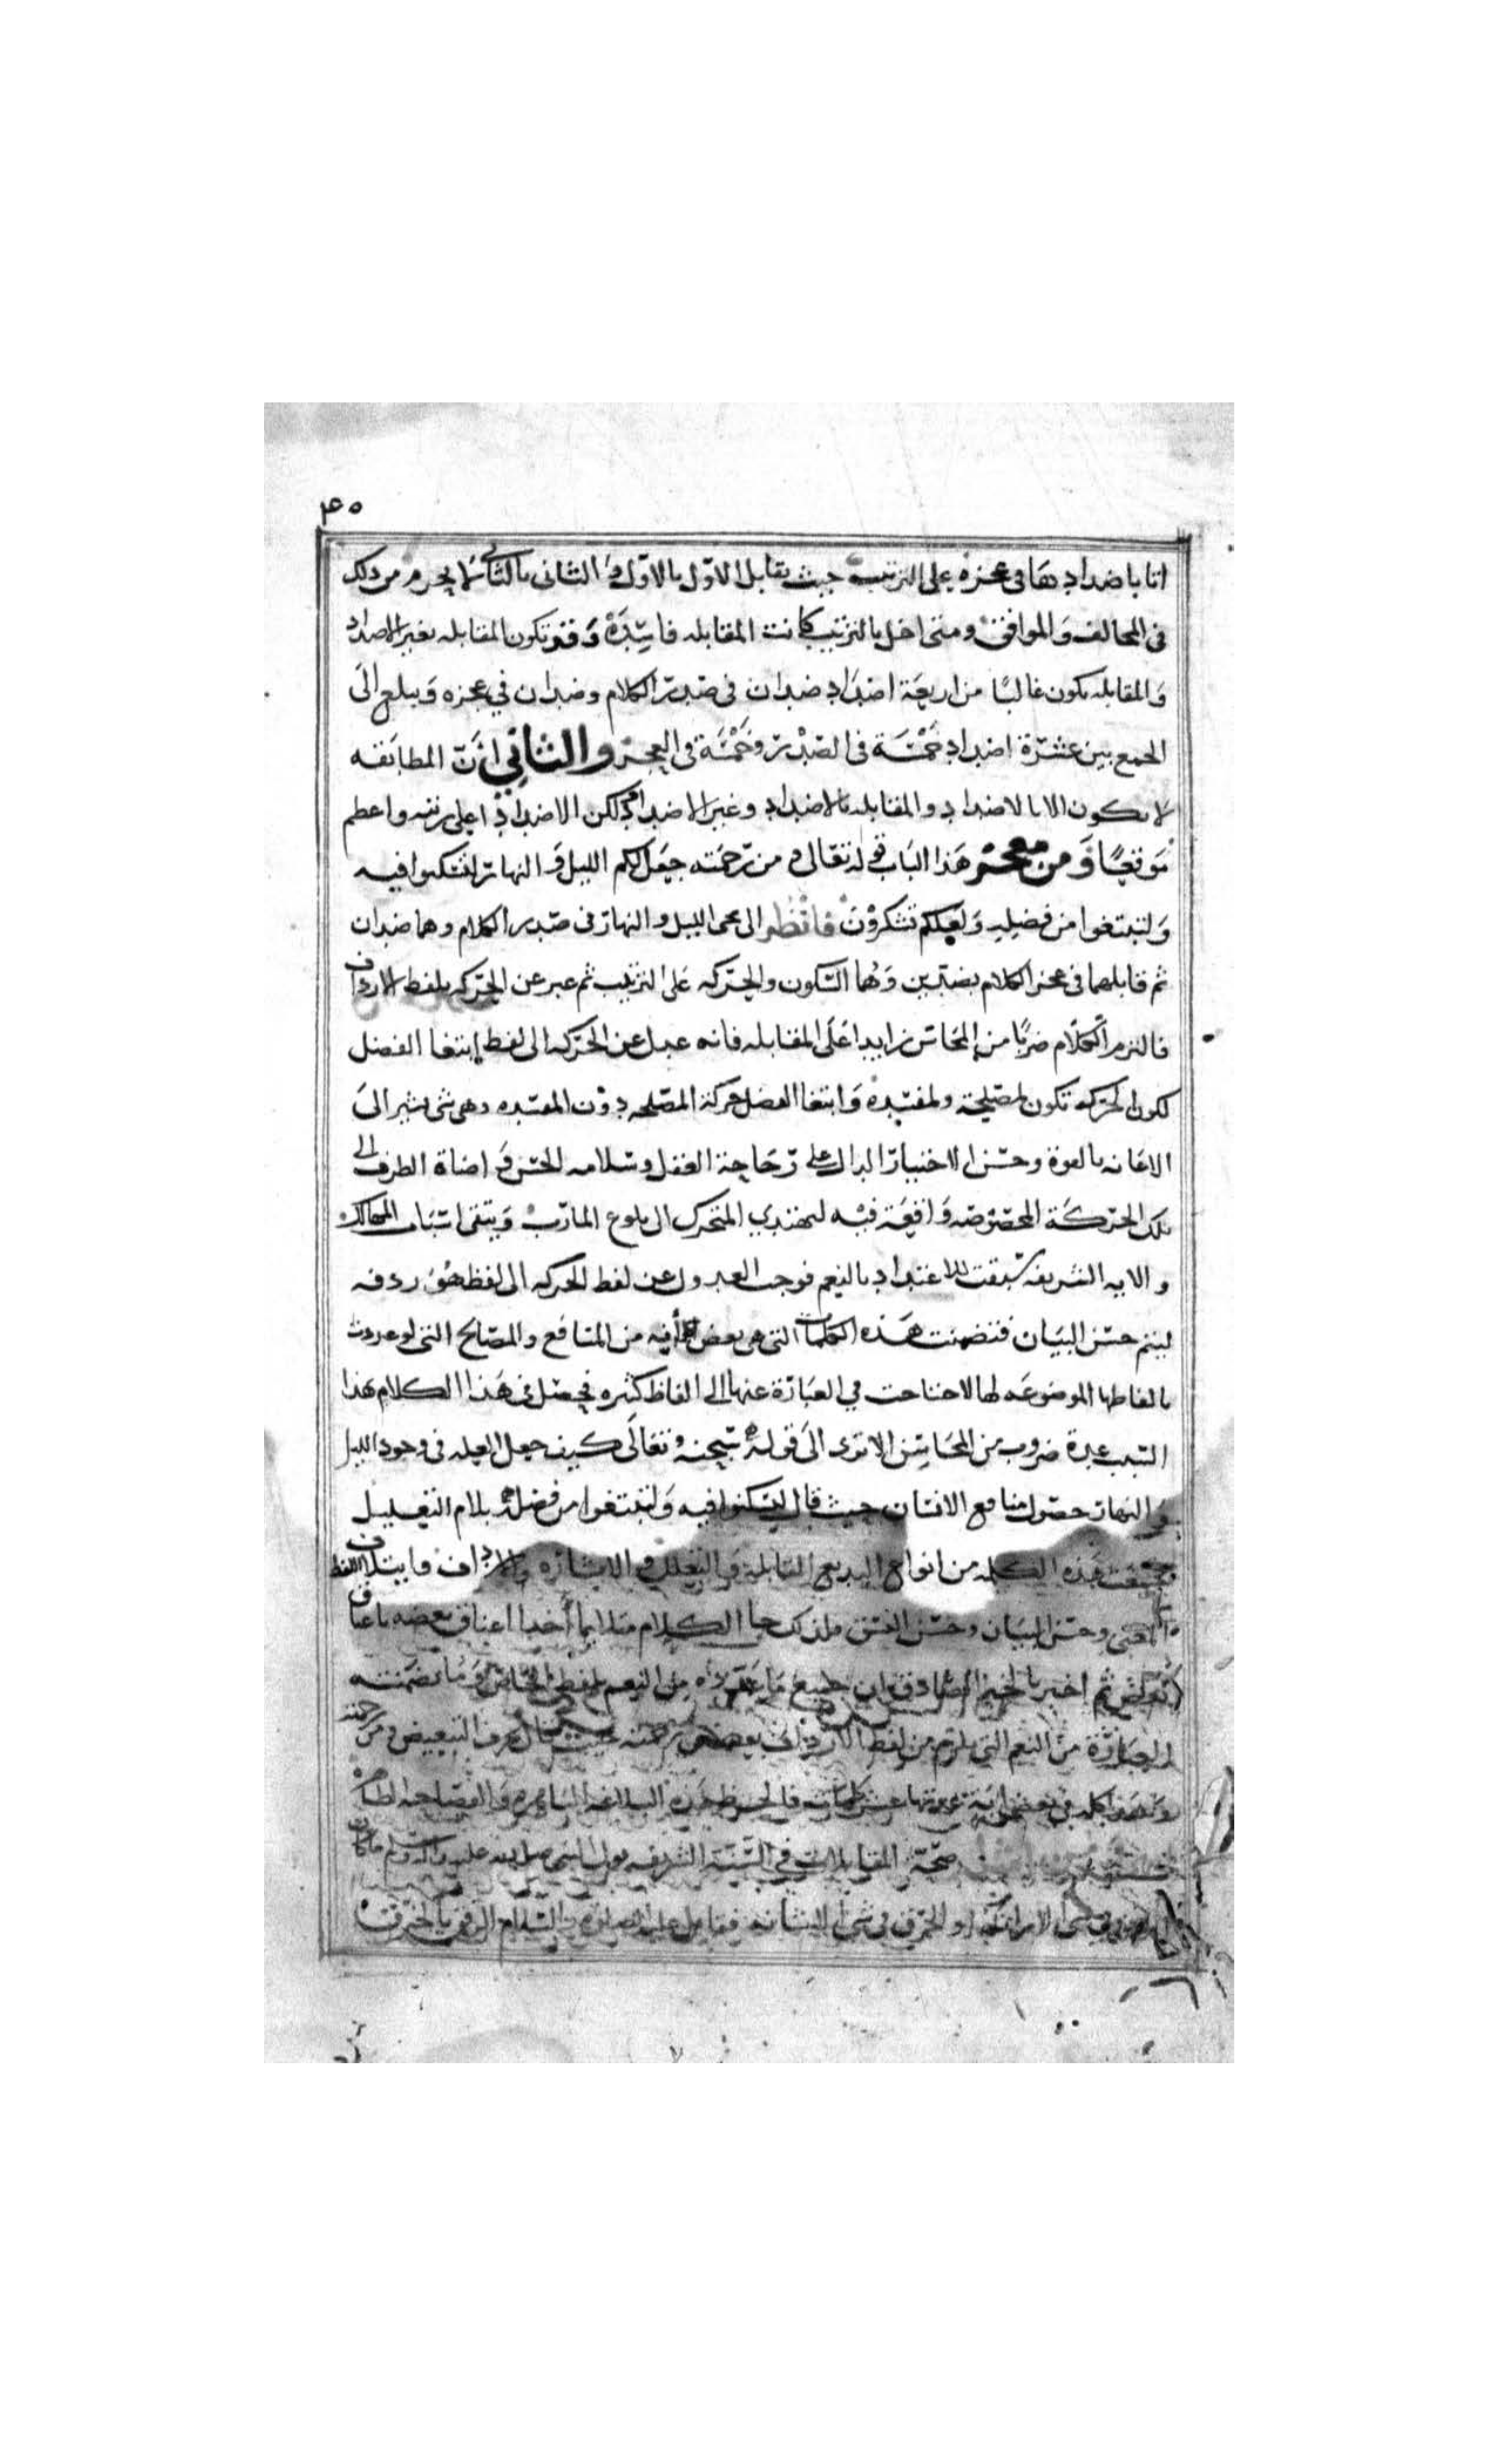 ٤٥
اتا باضدادها في عجزه على الترتيب حيث يقابل الاول بالاول والثاني بالثاني لا يخرم من ذلك
في المخالف والموافق ومتى اخل بالترتيب كانت المقابله فاسدة وقد تكون المقابله بغير الاضداد
والمقابله تكون غالبا من اربعة اضداد ضدان في صدر الكلام وضدان في عجزه ويبلغ الى
الجمع بين عشرة اضداد خمسة في الصدر وخمسة في العجز والثاني ان المطابقه
لا تكون الا بالاضداد والمقابله بالاضداد وغير الاضداد لكن الاضداد اعلى رتبه واعظم
موقعا ومن معجز هذا الباب قوله تعالى ومن رحمته جعل لكم الليل والنهار لتسكنوا فيه
ولتبتغوا من فضله ولعلكم تشكرون فانظر الى مجى الليل والنهار في صدر الكلام وهما ضدان
ثم قابلهما في عجز الكلام بضدين وهما السكون والحركه على الترتيب ثم عبر عن الحركه بلفط الارداف
فالتزم الكلام ضربا من المحاسن زايدا على المقابله فانه عدل عن الحركه الى لفط ابتغا الفضل
لكون الحركه تكون لمصلحة ولمفسدة وابتغا الفضل حركة المصلحه دون المفسده وهى شى يشير الى
الاعانه بالقوة وحسن الاختيار الدال على رجاحة العقل وسلامه الحس واضاة الطرف الى
تلك الحركة المخصوصه واقعة فيه ليهتدي المتحرك الى بلوغ المارب ويتقى اسباب المهالك
والايه الشريفه سيقت للاعتداد بالنعم فوجب العدول عن لفط الحركه الى لفظ هو ردفه
ليتم حسن البيان فتضمنت هذه الكلمات التى هى بعض أيه من المنافع والمصالح التى لو عددت
بالفاطها الموضوعه لها لاحتاجت في العبارة عنها الى الفاظ كثيره فحصل في هذا الكلام بهذا
السبب عدة ضروب من المحاسن الا ترى الى قوله سبحنه وتعالى كيف جعل العله في وجود الليل
والنهار حصول منافع الانسان حيث قال لتسكنوا فيه ولتبتغوا من فضله بلام التعليل
فجمعت هذه الكلمه من انواع البديع المقابلة والتعليل والاشاره والارداف وايتلاف اللفظ
المعنى وحسن البيان وحسن النسق فلذلك جا الكلام متلايما أخدا اعناق بعضه باعناق
بعض ثم اخبر بالخبر الصادق ان جميع ما عدده من النعم بلفظه الخاص وما تضمنته
العبارة من النعم التي يلزم من لفظ الارداف بعض من رحمته حيث قال بحرف التبعيض من رحمته
وهذا كله في بعض ايه عدتها عشر كلمات فالحظ هذه البلاغه الباهره والفصاحه الظاهره
صحة المقابلات في السنة الشريفه قول النبى صلى الله عليه واله وسلم ما كان
الرفق في شى الا زانه ولا الخرق في شى الا شانه فقابل عليه الصلوة والسلام الرفق بالخرق